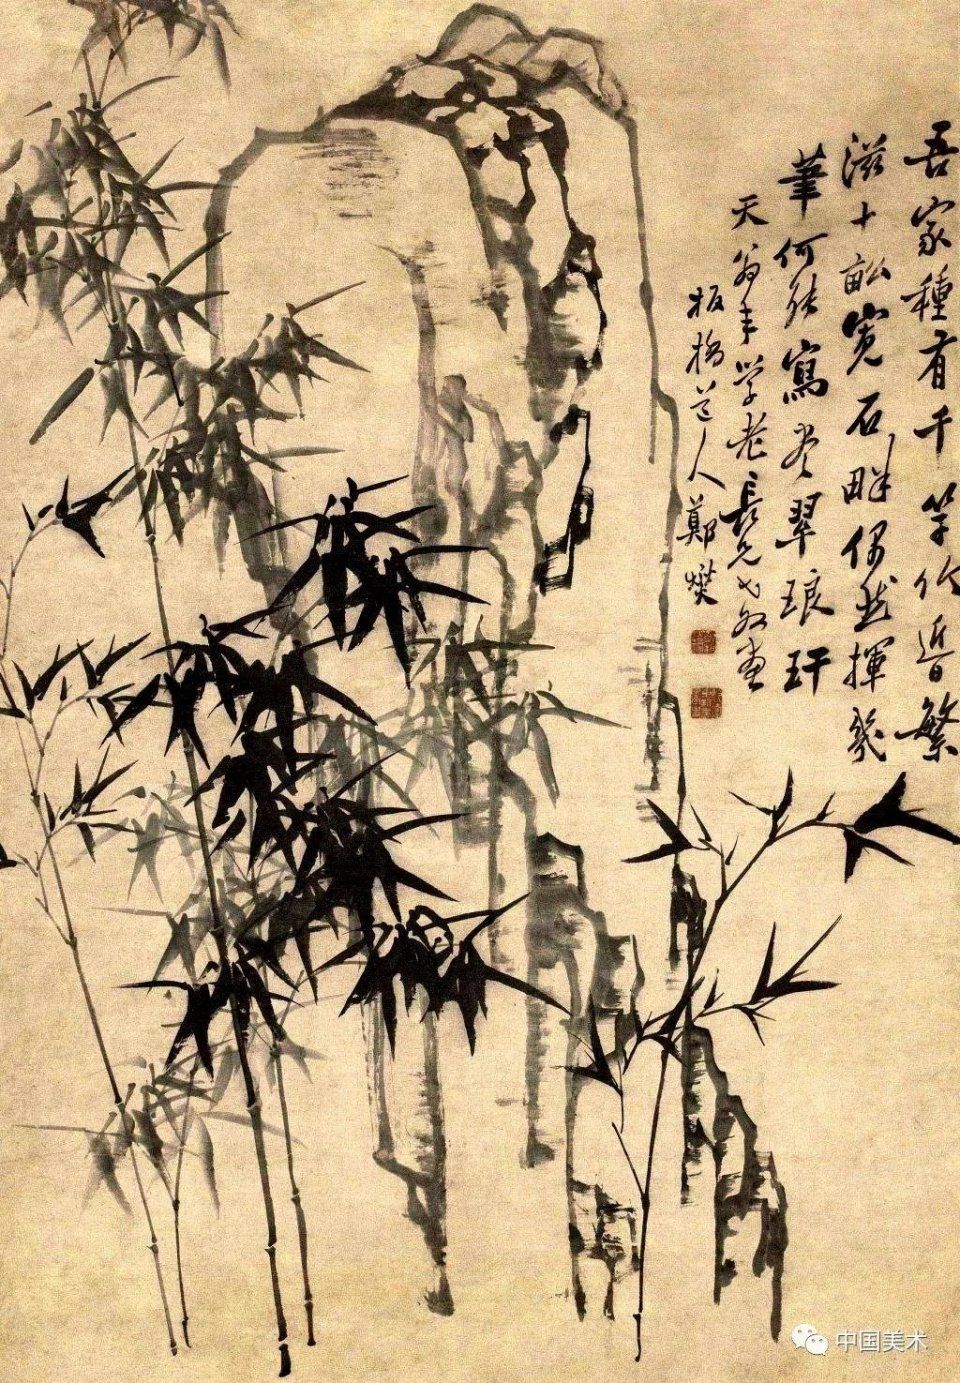 吾家種有千竿竹近日繁
滋十畝寬石畔偶然揮幾
筆何能寫盡翠琅玕
天翁年學老長兄畫
板橋道人鄭燮
中国美术